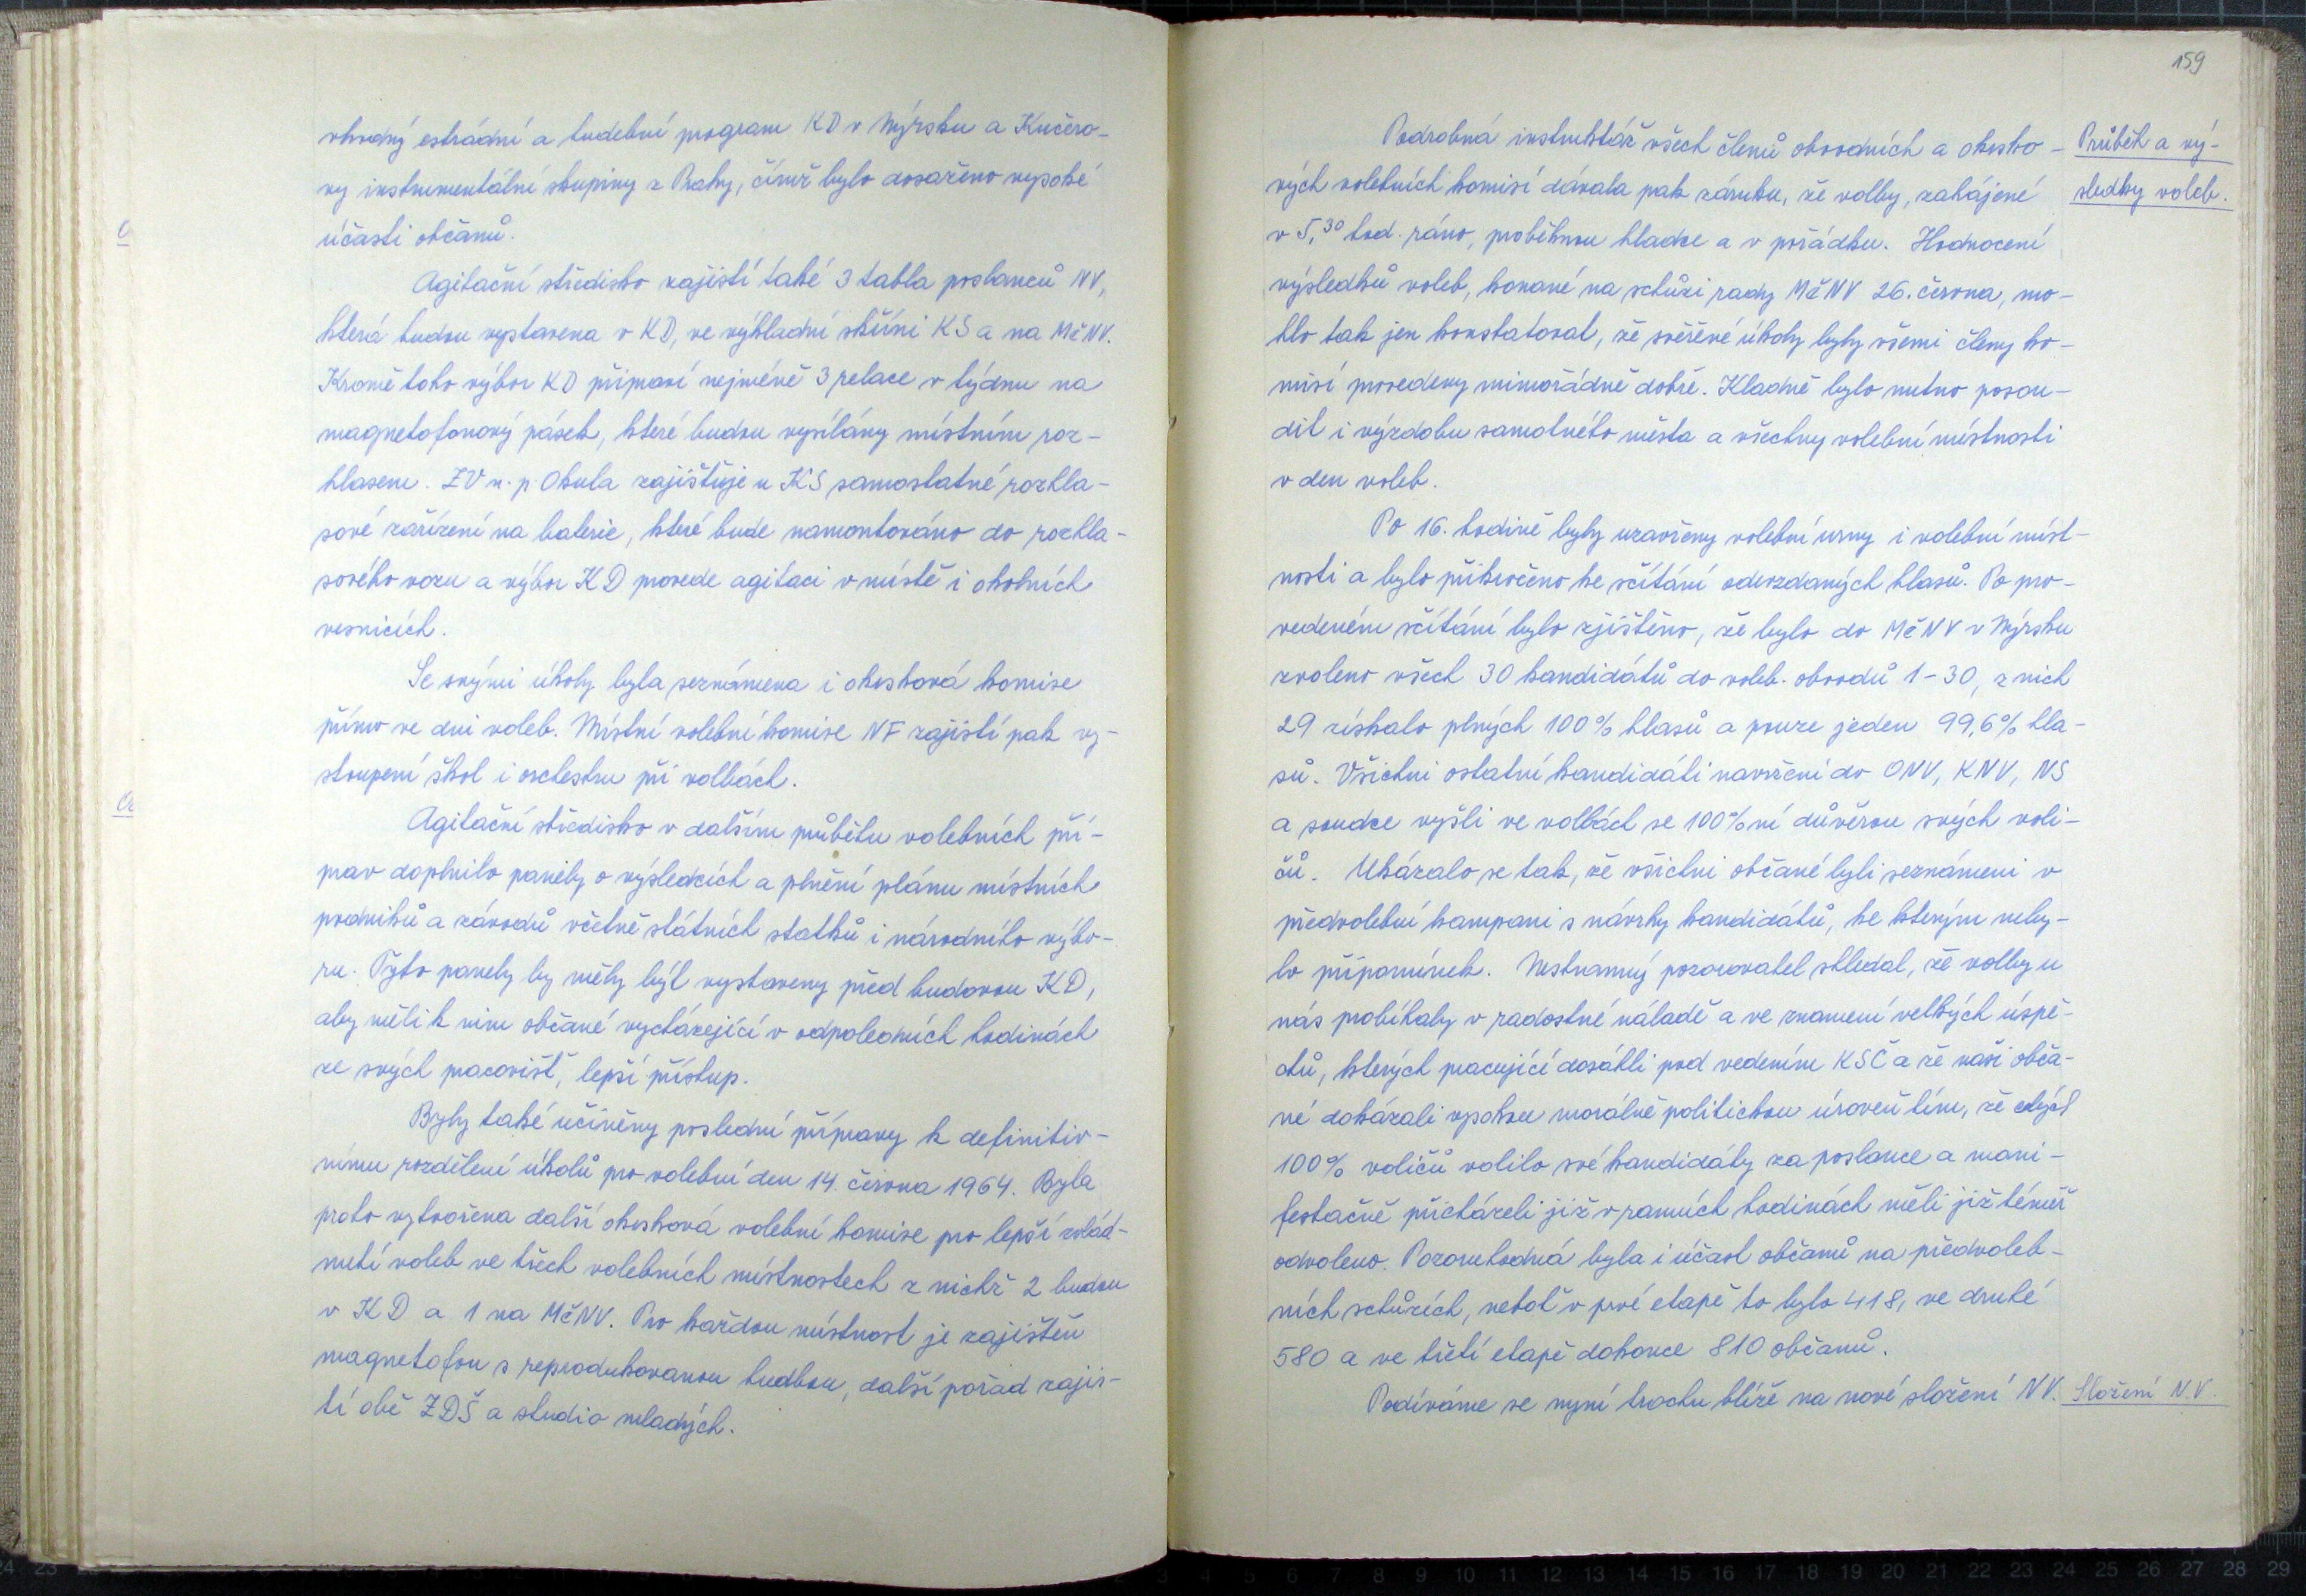 vhodný estrádní a hudební program KD v Nýrsku a Kučero-
vy instrumentální skupiny z Prahy, čímž bylo dosaženo vysoké
účasti občanů.
Agitační středisko zajistí také 3 tabla poslanců NV,
která budou vystavena v KD, ve výkladní skříni KS a na MěNV.
Kromě toho výbor KD připraví nejméně 3 relace v týdnu na
magnetofonový pásek, které budou vysílány místním roz-
hlasem. ZV n. p. Okula zajišťuje u KS samostatné rozhla-
sové zařízení na baterie, které bude namontováno do rozhla-
sového vozu a výbor KD provede agitaci v místě i okolních
vesnicích.
Se svými úkoly byla seznámena i okrsková komise
přímo ve dni voleb. Místní volební komise NF zajistí pak vy-
stoupení škol i orchestru při volbách.
Agitační středisko v dalším průběhu volebních pří-
prav doplnilo panely o výsledcích a plnění plánu místních
podniků a závodů včetně státních statků i národního výbo-
ru. Tyto panely by měly být vystaveny před budovou KD,
aby měli k nim občané vycházející v odpoledních hodinách
ze svých pracovišť, lepší přístup.
Byly také učiněny poslední přípravy k definitiv-
nímu rozdělení úkolů pro volební den 14. června 1964. Byla
proto vytvořena další okrsková volební komise pro lepší zvlád-
nutí voleb ve třech volebních místnostech z nichž 2 budou
v KD a 1 na MěNV. Pro každou místnost je zajištěn
magnetofon s reprodukovanou hudbou, další pořad zajis-
tí obě ZDŠ a studio mladých.
159
Podrobná instruktáž všech členů obvodních a okrsko-
vých volebních komisí dávala pak záruku, že volby, zahájené
v 5,30 hod. ráno, proběhnou hladce a v pořádku. Hodnocení
výsledků voleb, konané na schůzi rady MěNV 26. června, mo-
hlo tak jen konstatovat, že svěřené úkoly byly všemi členy ko-
misí provedeny mimořádně dobře. Kladně bylo nutno posou-
dit i výzdobu samotného města a všechny volební místnosti
v den voleb.
Po 16. hodině byly uzavřeny volební urny i volební míst-
nosti a bylo přikročeno ke sčítání odevzdaných hlasů. Po pro-
vedeném sčítání bylo zjištěno, že bylo do MěNV v Nýrsku
zvoleno všech 30 kandidátů do voleb. obvodů 1-30, z nich
29 získalo plných 100% hlasů a pouze jeden 99,6% hla-
sů. Všichni ostatní kandidáti navržení do ONV, KNV, NS
a soudce vyšli ve volbách se 100%ní důvěrou svých voli-
čů. Ukázalo se tak, že všichni občané byli seznámeni v
předvolební kampani s návrhy kandidátů, ke kterým neby-
lo připomínek. Nestranný pozorovatel shledal, že volby u
nás probíhaly v radostné náladě a ve znamení velkých úspě-
chů, kterých pracující dosáhli pod vedením KSČ a že naši obča-
né dokázali vysokou morálně politickou úroveň tím, že celých
100% voličů volilo své kandidáty za poslance a mani-
festačně přicházeli již v ranních hodinách měli již téměř
odvoleno. Pozoruhodná byla i účast občanů na předvoleb-
ních schůzích, neboť v prvé etapě to bylo 418, ve druhé
580 a ve třetí etapě dokonce 810 občanů.
Podíváme se nyní trochu blíže na nové složení NV.
Průběh a vý-
sledky voleb.
Složení N.V.